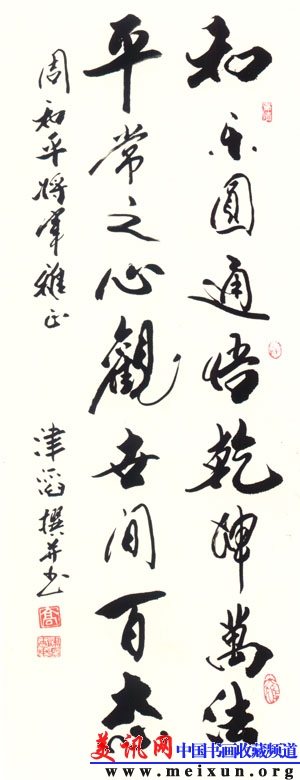 和乐圆通悟乾坤万法
平常之心觀世间百态
周和平将军雅正
津滔撰并书
美讯网 中国书画收藏频道
www.meixun.org